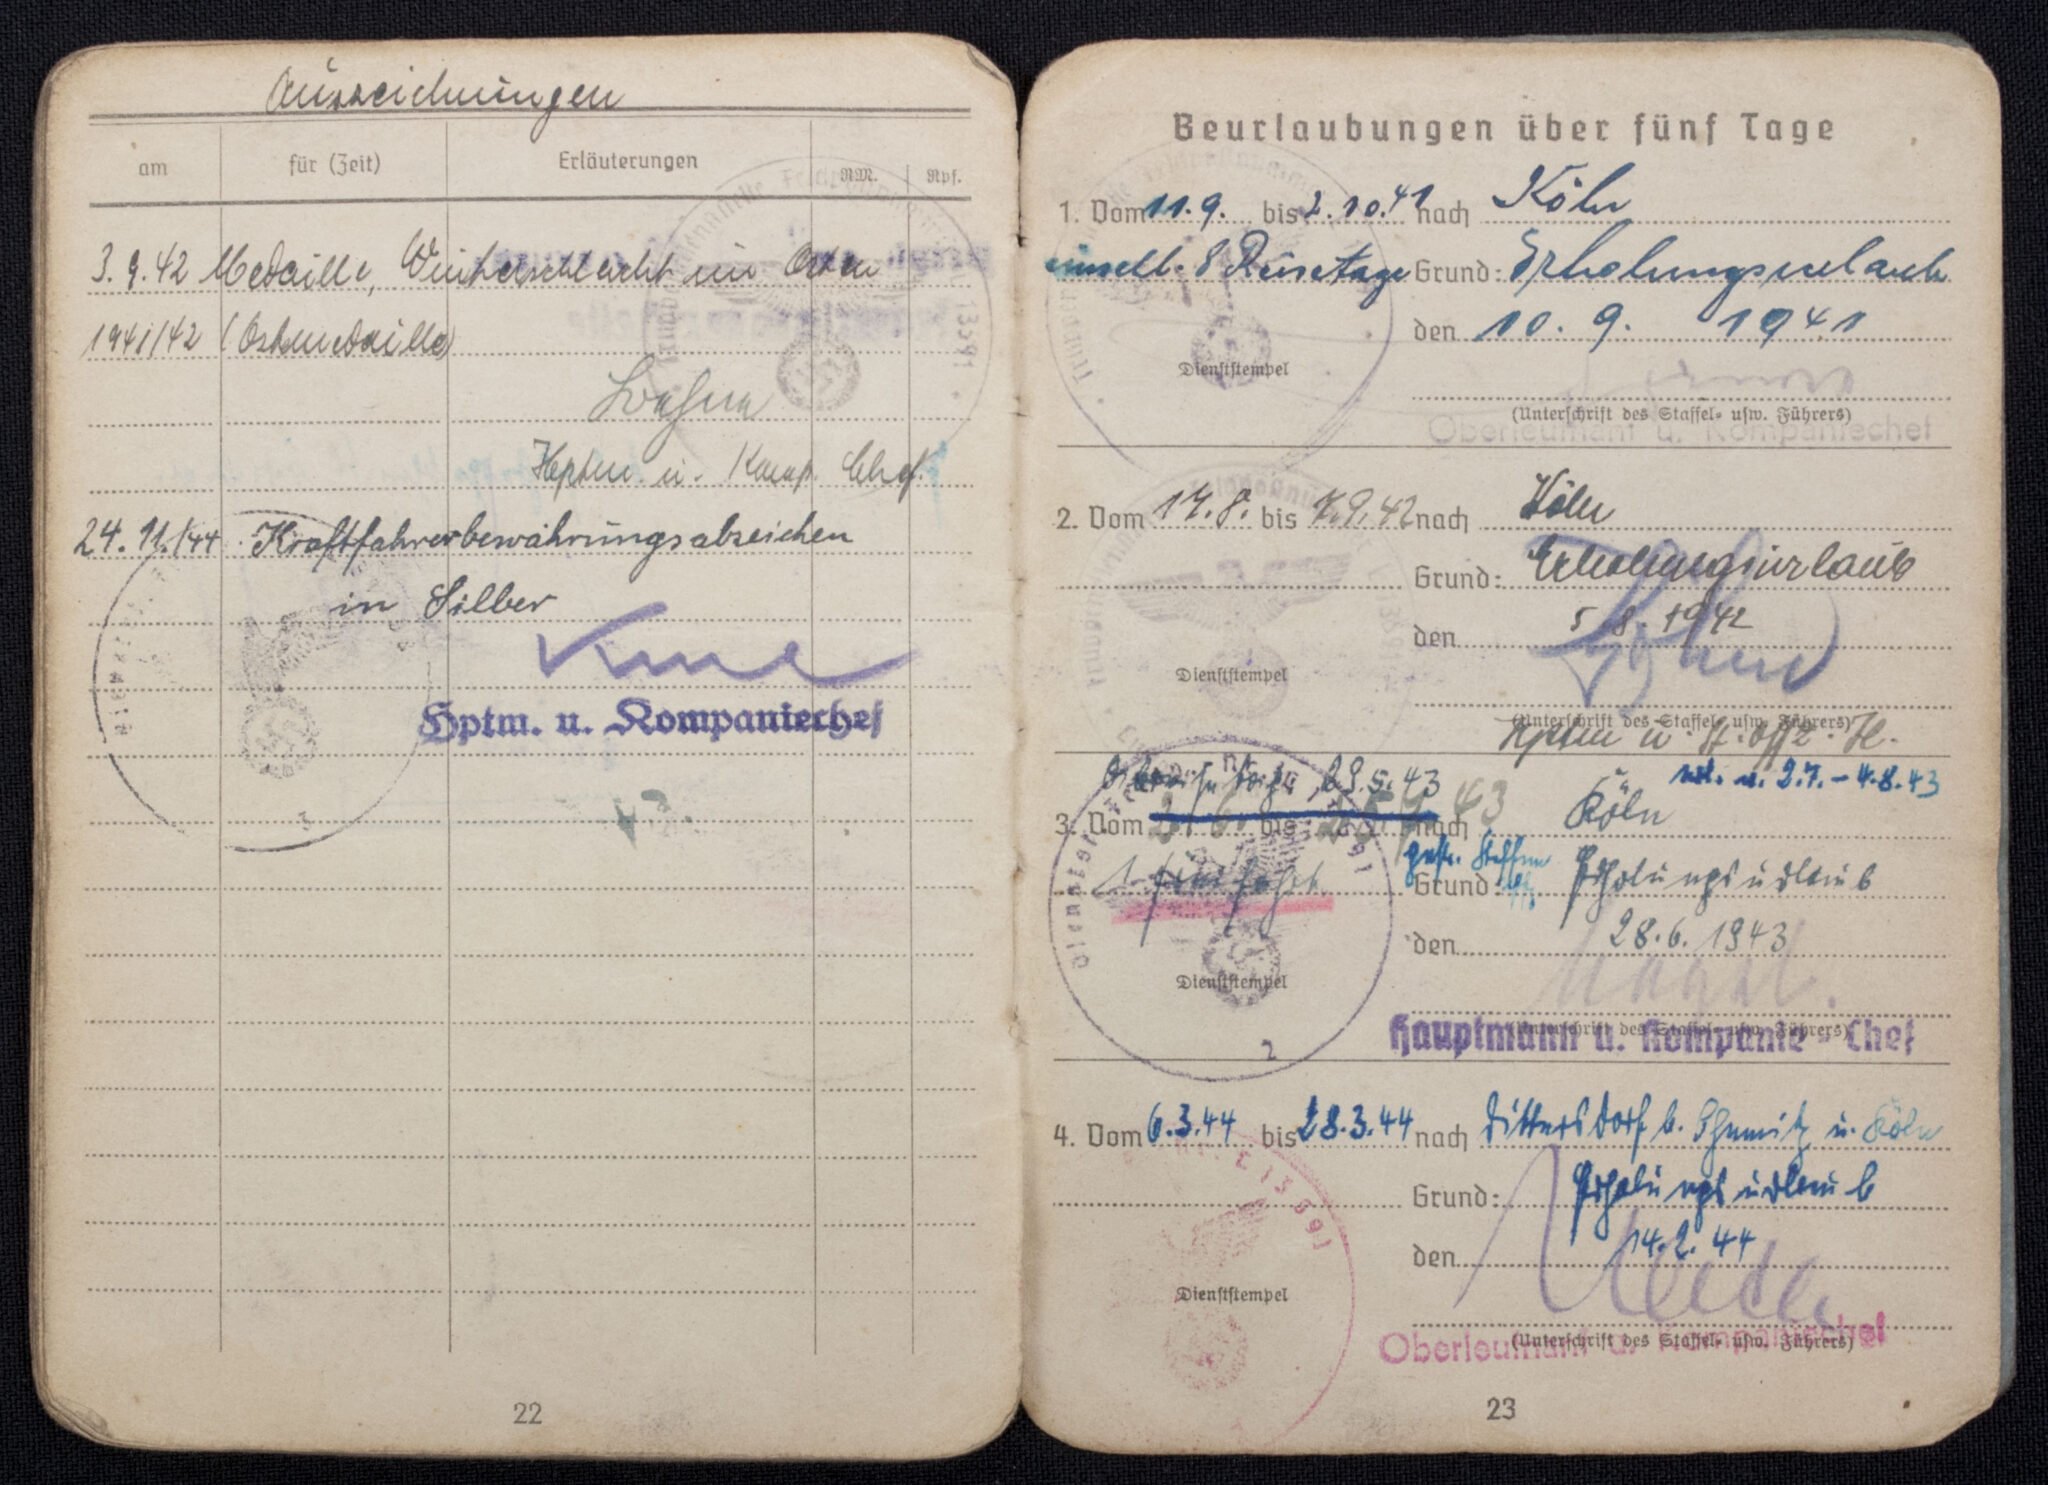 Auszeichnungen
am für (Zeit) Erläuterungen RM. Rpf.
3. 9. 42 Medaille, Winterschlacht im Osten
1941/42 (Ostmedaille)
Hptm. u. Komp. Chef.
24. 11./44 Kraftfahrerbewährungsabzeichen
in Silber
Hptm. u. Kompaniechef
3
22
Beurlaubungen über fünf Tage
1. Vom 11.9. bis 2.10.41 nach Köln
einschl. 8 Reisetage Grund: Erholungsurlaub
den 10. 9. 1941
Dienststempel
(Unterschrift des Staffel- usw. Führers)
Oberleutnant u. Kompaniechef
2. Vom 17.8. bis 7.9.42 nach Köln
Grund: Erholungsurlaub
den 5.8.1942
Dienststempel
(Unterschrift des Staffel- usw. Führers)
29.5.43
vl. v. 2.7. - 4.8.43
3. Vom bis nach Köln
Grund: Erholungsurlaub
den 28.6.1943
Dienststempel
(Unterschrift des Staffel- usw. Führers)
Hauptmann u. Kompanie-Chef
2
4. Vom 6.3.44 bis 28.3.44 nach Dittersdorf b. Chemnitz u. Köln
Grund: Erholungsurlaub
den 14.2.44
Dienststempel
(Unterschrift des Staffel- usw. Führers)
Oberleutnant u. Kompaniechef
23